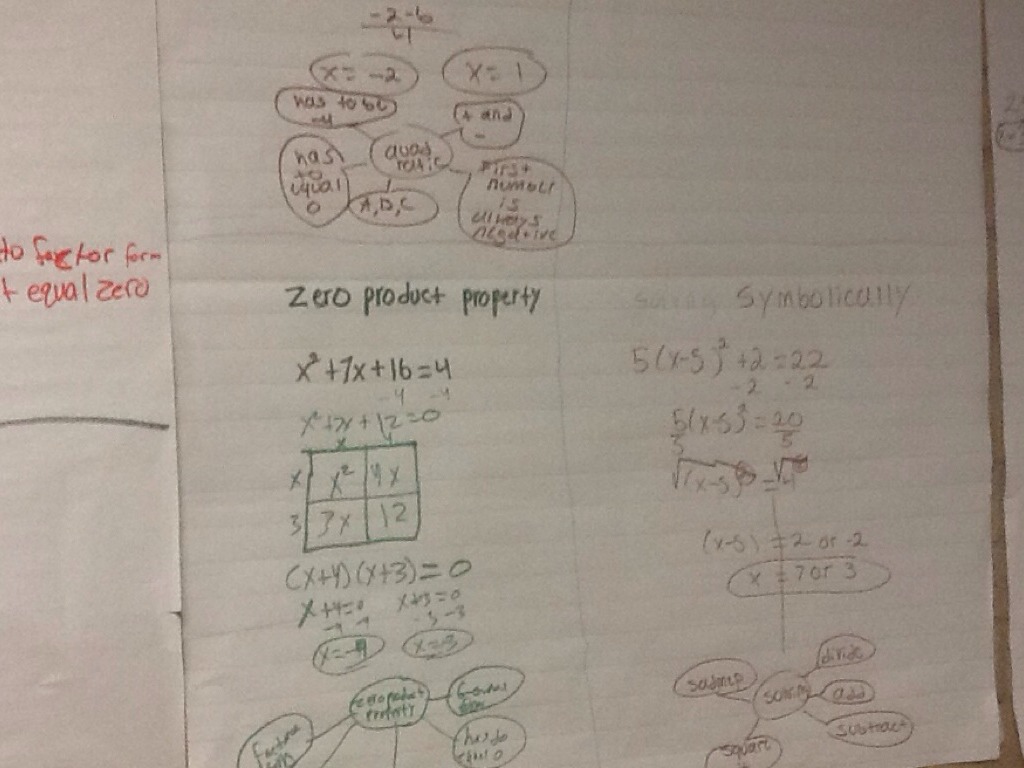 -2-6
4
x = -2
x = 1
has to be
-4
+ and
-
quad
ratic
has
to
equal
0
A, B, C
First
number
is
always
negative
to factor form
equal zero
Zero product property
x² + 7x + 16 = 4
-4 -4
x² + 7x + 12 = 0
x 4
x x² 4x
3 3x 12
(x+4)(x+3) = 0
x+4=0 x+3=0
-4 -4 -3 -3
x=-4 x=-3
zero product
property
has to
equal 0
Symbolically
5(x-5)² + 2 = 22
-2 -2
5(x-5)² = 20
5 5
√(x-5)² = √4
(x-5) = 2 or -2
x = 7 or 3
divide
add
subtract
square